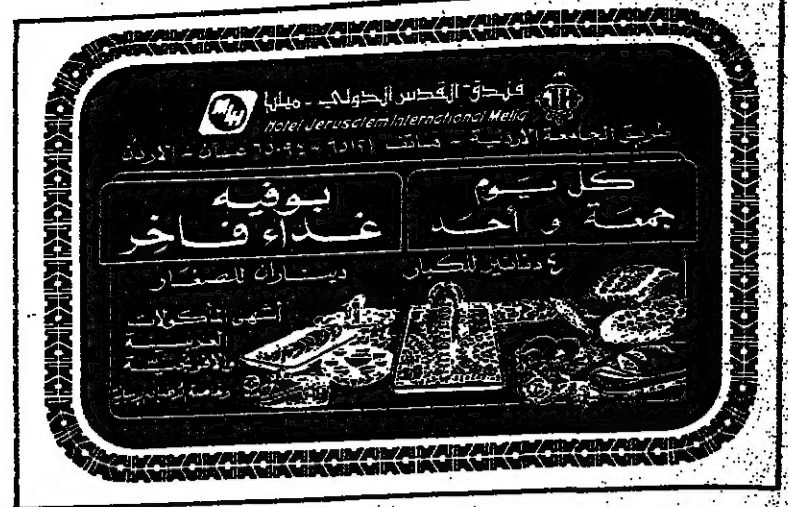 فندق القدس الدولي - ميليا
MH
Hotel Jerusalem International Melia
طريق الجامعة الاردنية - هاتف ٦٥١٢١ - ٦٥٠٩٤ عمان - الاردن
كل يوم
جمعة و أحد
بوفيه
غداء فاخر
٤ دنانير للكبار
ديناران للصغار
أشهى المأكولات
العربية
والافرنجية